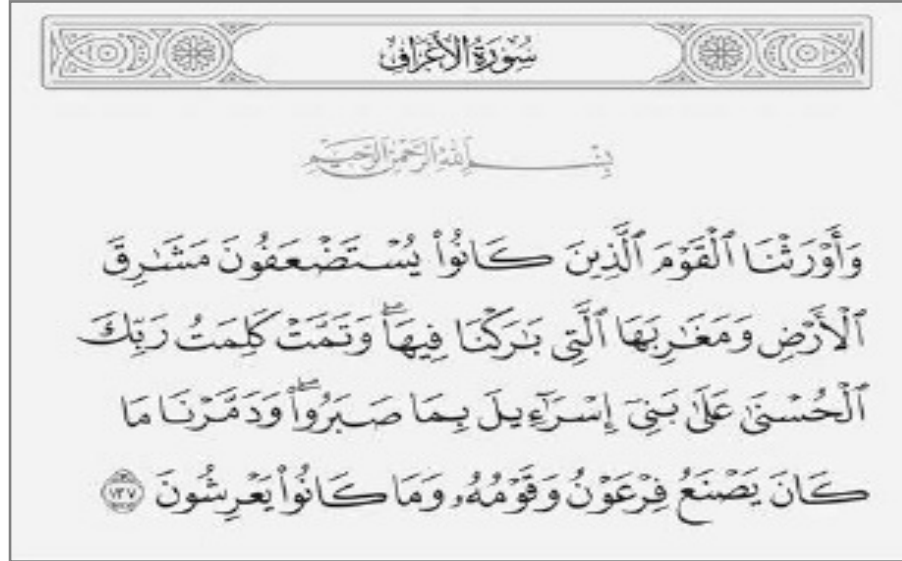 سُورَةُ الْأَعْرَافِ
بِسْمِ ٱللَّهِ ٱلرَّحْمَٰنِ ٱلرَّحِيمِ
وَأَوْرَثْنَا ٱلْقَوْمَ ٱلَّذِينَ كَانُوا۟ يُسْتَضْعَفُونَ مَشَٰرِقَ
ٱلْأَرْضِ وَمَغَٰرِبَهَا ٱلَّتِى بَٰرَكْنَا فِيهَا ۖ وَتَمَّتْ كَلِمَتُ رَبِّكَ
ٱلْحُسْنَىٰ عَلَىٰ بَنِىٓ إِسْرَٰٓءِيلَ بِمَا صَبَرُوا۟ ۖ وَدَمَّرْنَا مَا
كَانَ يَصْنَعُ فِرْعَوْنُ وَقَوْمُهُۥ وَمَا كَانُوا۟ يَعْرِشُونَ ١٣٧